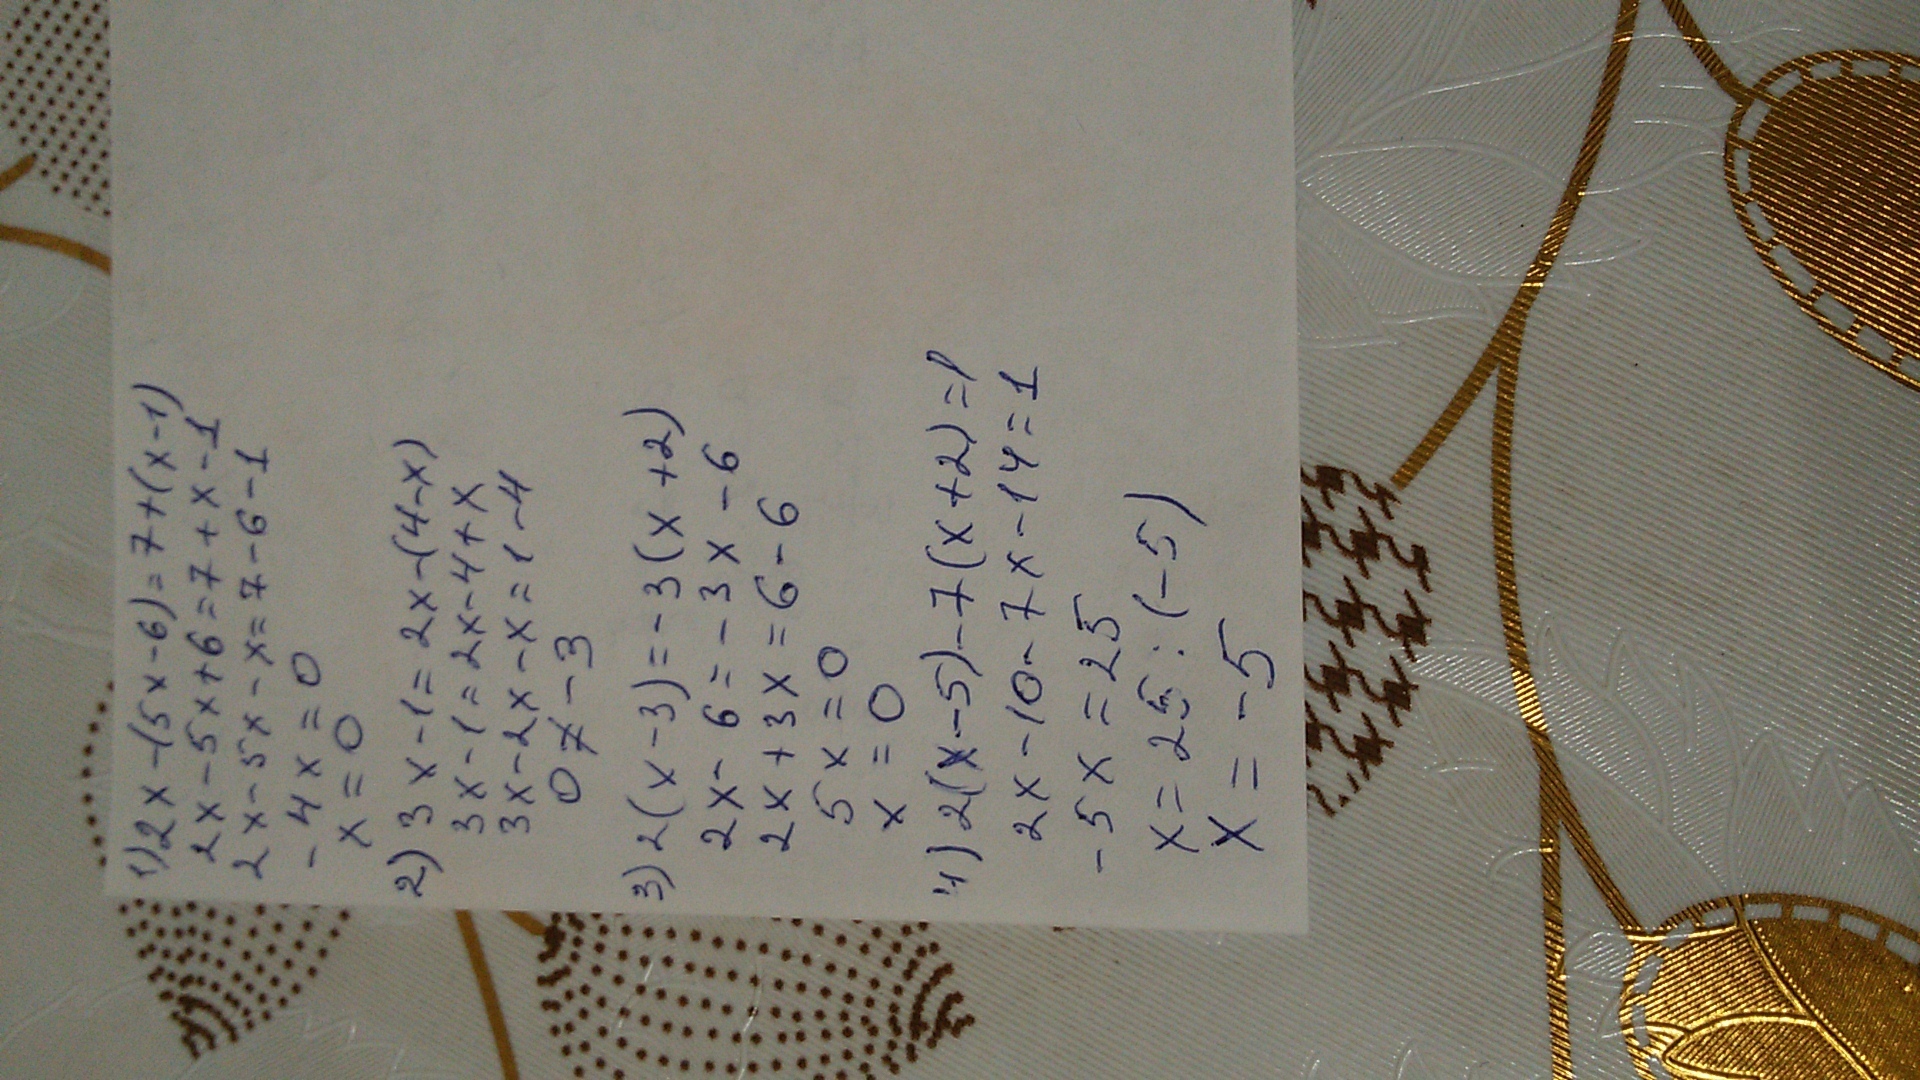 1) 2x-(5x-6)=7+(x-1)
2x-5x+6=7+x-1
2x-5x-x=7-6-1
-4x=0
x=0
2) 3x-1=2x-(4-x)
3x-1=2x-4+x
3x-2x-x=1-4
0≠-3
3) 2(x-3)=-3(x+2)
2x-6=-3x-6
2x+3x=6-6
5x=0
x=0
4) 2(x-5)-7(x+2)=1
2x-10-7x-14=1
-5x=25
x=25:(-5)
x=-5